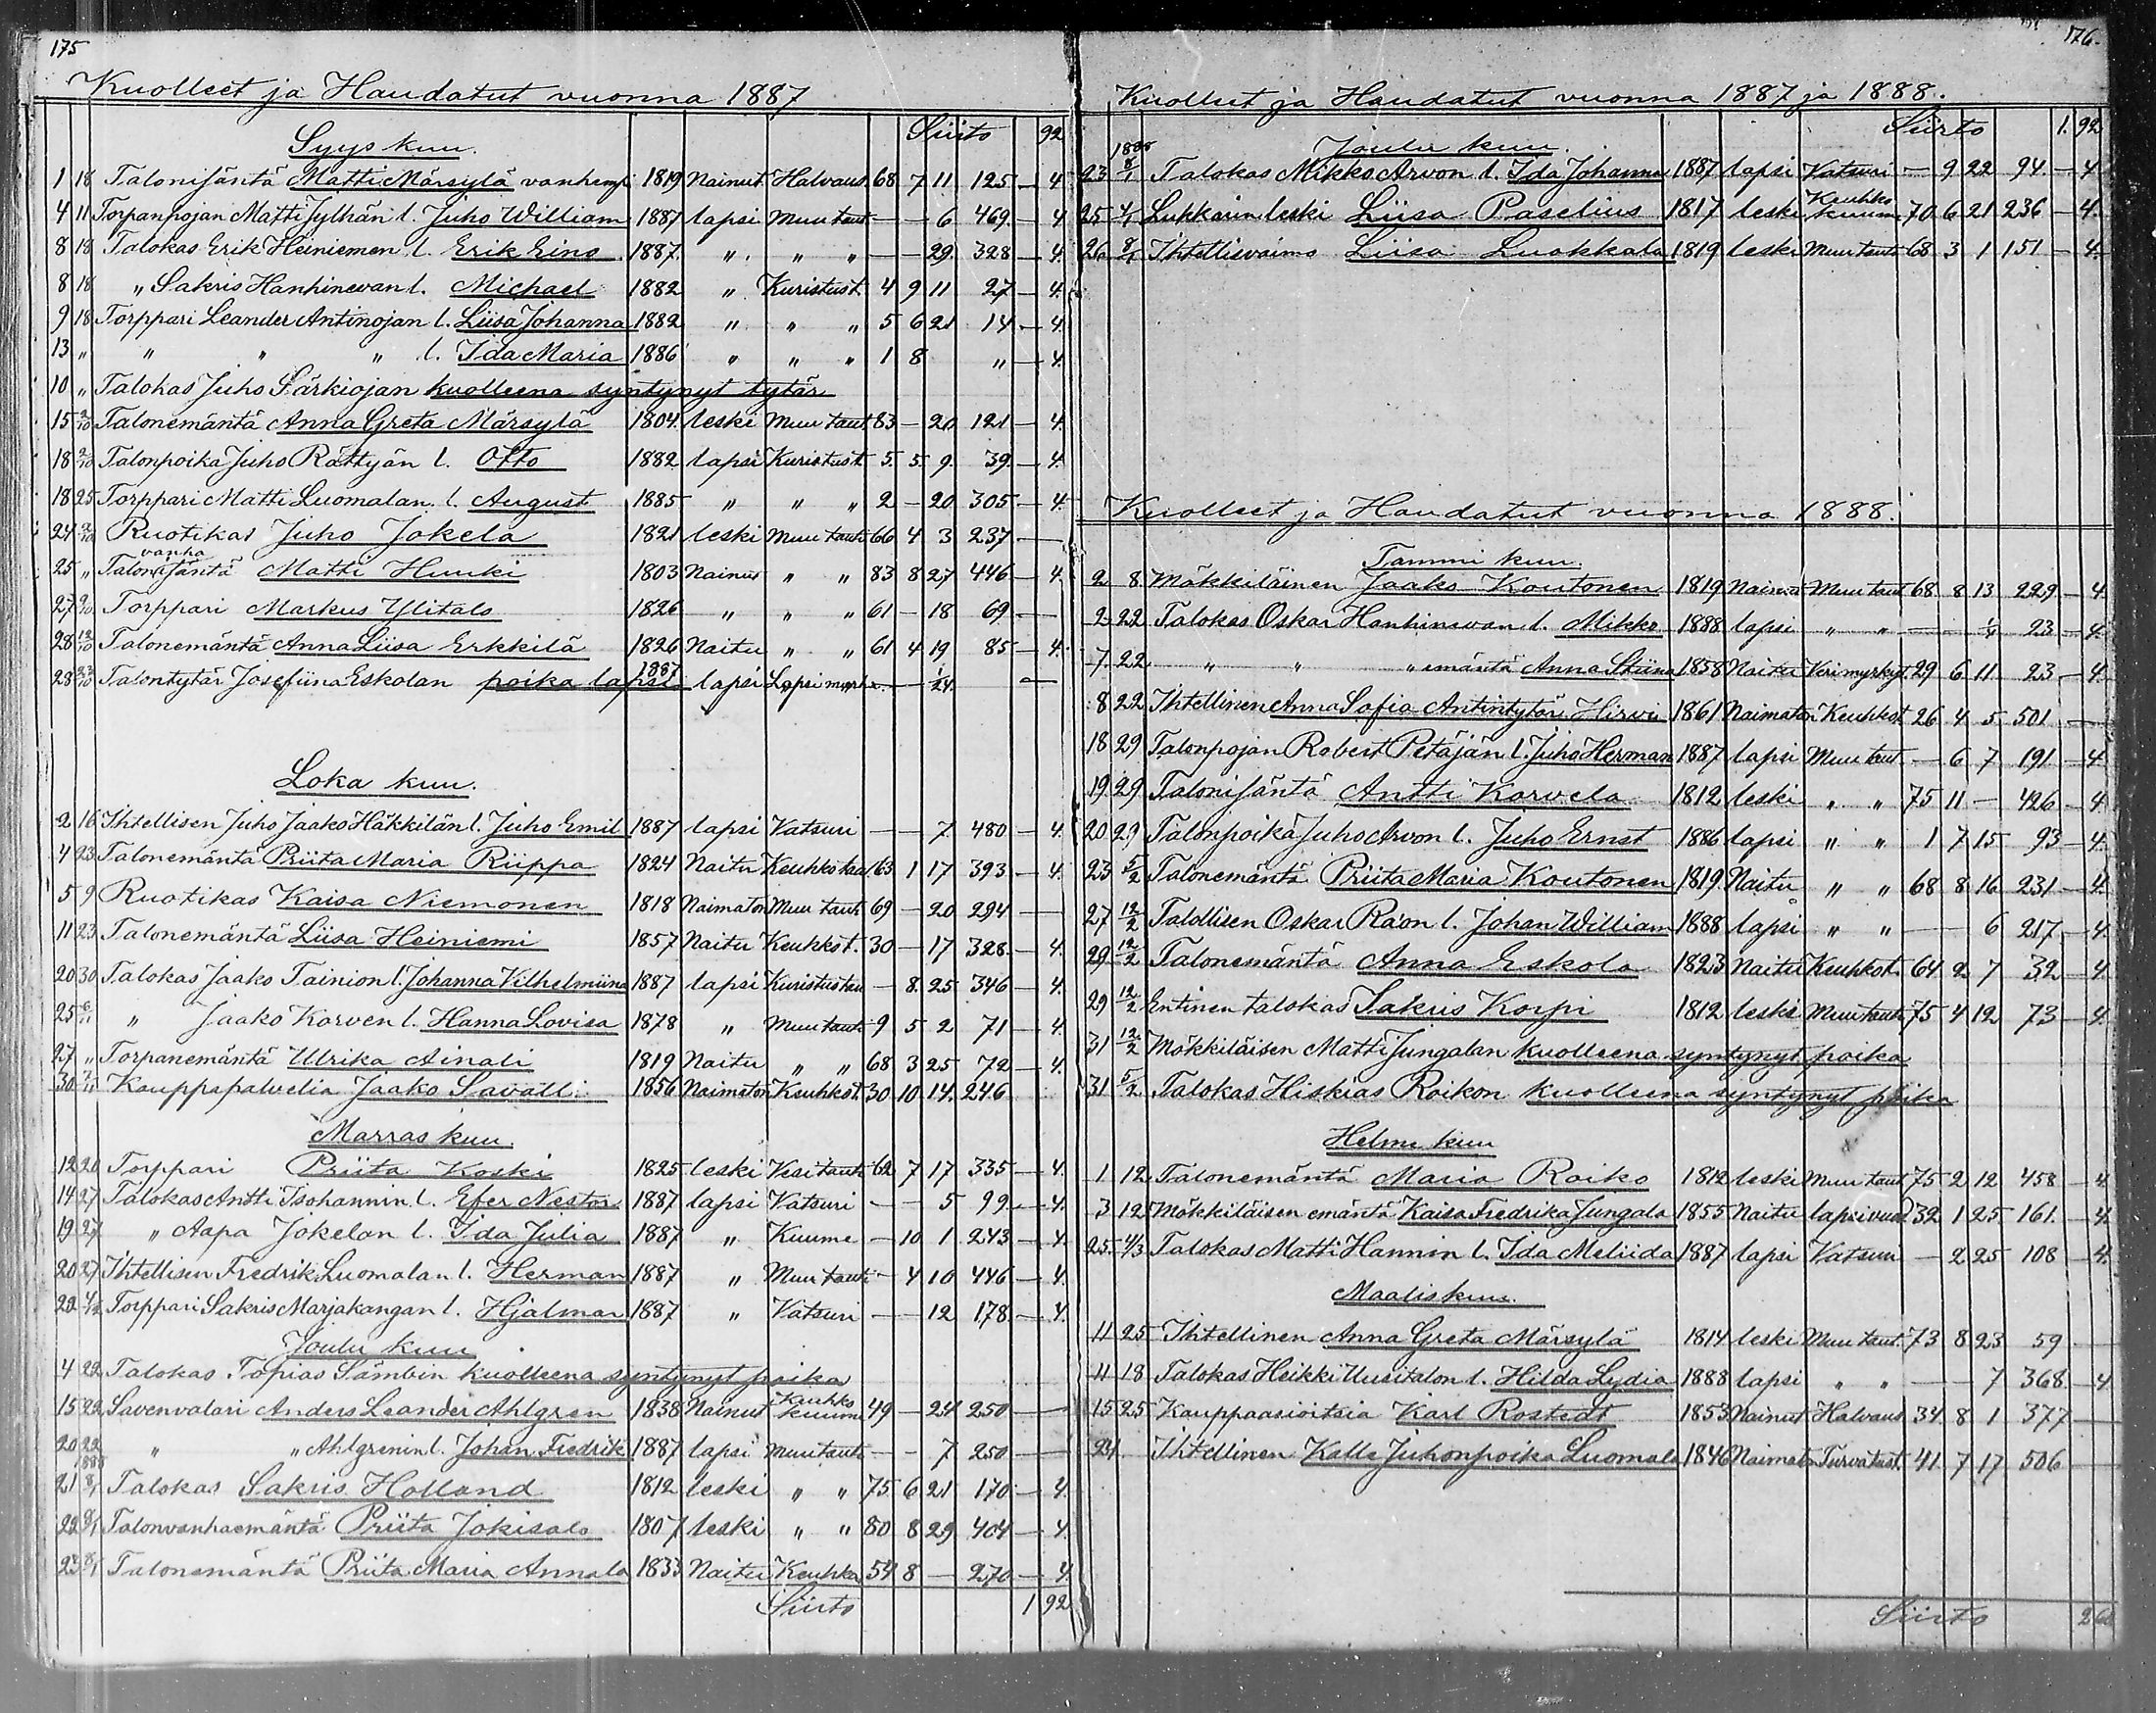 175
Kuolleet ja Haudatut vuonna 1887
Siirto 92
Syys kuu.
1 18 Talonisäntä Matti Märsylä vanhempi 1819 Nainut Halvaus 68 7 11 125 — 4
4 11 Torpanpojan Matti Jylhän l. Juho William 1887 lapsi Muu taut — — 6 469 — 4
8 18 Talokas Erik Heiniemen l. Erik Eino 1887 " " " — — 29 328 — 4.
8 18 " Sakris Hanhinevan l. Michael 1882 " Kuristust. 4 9 11 27 — 4.
9 18 Torppari Leander Antinojan l. Liisa Johanna 1882 " " " 5 6 21 14 — 4.
13 " " " " l. Ida Maria 1886 " " " 1 8 " — 4.
10 " Talokas Juho Särkiojan kuolleena syntynyt tytär
15 2/10 Talonemäntä Anna Greta Märsylä 1804 leski Muu taut. 83 — 20 121 — 4.
18 2/10 Talonpoika Juho Rättyän l. Otto 1882 lapsi Kuristust. 5 5 9 39 — 4.
18 25 Torppari Matti Luomalan l. August 1885 " " " 2 — 20 305 — 4.
24 2/10 Ruotikas Juho Jokela 1821 leski Muu taut 66 4 3 237 —
25 " Talon vanha isäntä Matti Huuki 1803 Nainut " " 83 8 27 446 — 4.
27 9/10 Torppari Markus Ylitalo 1826 " " " 61 — 18 69 —
28 12/10 Talonemäntä Anna Liisa Erkkilä 1826 Naitu " " 61 4 19 85 — 4.
28 23/10 Talontytär Josefiina Eskolan poika lapsi 1887 lapsi — — 1/24 —
Loka kuu.
2 16 Ihtellisen Juho Jaako Häkkilän l. Juho Emil 1887 lapsi Katsuri — — 7 480 — 4.
4 23 Talonemäntä Priita Maria Riippa 1824 Naitu 63 1 17 393 — 4.
5 9 Ruotikas Kaisa Niemonen 1818 Naimaton Muu taut 69 — 20 294 —
11 23 Talonemäntä Liisa Heiniemi 1857 Naitu Keuhkot. 30 — 17 328 — 4.
20 30 Talokas Jaako Tainion l. Johanna Vilhelmiina 1887 lapsi Kuristustau — 8 25 346 — 4.
25 6/11 " Jaako Korven l. Hanna Lovisa 1878 " Muu taut. 9 5 2 71 — 4.
27 " Torpanemäntä Ulrika Ainali 1819 Naitu " " 68 3 25 72 — 4.
30 Kauppapalvelia Jaako Savalli 1856 Naimaton Keuhkot. 30 10 14 246
Marras kuu.
12 20 Torppari Priita Koski 1825 leski Vesi taut 62 7 17 335 — 4.
14 27 Talokas Antti Isohannin l. Efer Nestor 1887 lapsi Vatsuri — — 5 99 — 4.
19 27 " Aapa Jokelan l. Ida Julia 1887 " Kuume — 10 1 243 — 4.
20 27 Ihtellisen Fredrik Luomalan l. Herman 1887 " Muu taut. — 4 10 446 — 4.
22 4/12 Torppari Sakris Marjakangan l. Hjalmar 1887 " Vatsuri — — 12 178 — 4.
Joulu kuu
4 22 Talokas Topias Sämbin kuolleena syntynyt poika
15 22 Savenvalari Anders Leander Ahlgren 1838 Nainut Keuhko kuume 49 — 24 250 —
20 22 " " Ahlgrenin l. Johan Fredrik 1887 lapsi Muu taut. — — 7 250 —
21 1888 8/1 Talokas Sakris Holland 1812 leski " " 75 6 21 170 — 4.
22 8/1 Talonvanhaemäntä Priita Jokisalo 1807 leski " " 80 8 29 404 — 4.
23 8/1 Talonemäntä Priita Maria Annala 1833 Naitu Keuhko 54 8 — 270 — 4.
Siirto 1 92
176.
Kuolleet ja Haudatut vuonna 1887 ja 1888.
Siirto 1. 92
Joulu kuu.
23 8/1 Talokas Mikko Arvon l. Ida Johanna 1887 lapsi Katsuri — 9 22 94 — 4
25 4/1 Lukkarin leski Liisa Paselius 1817 leski Keuhko kuume 70 6 21 236 — 4.
26 8/1 Ihtellisvaimo Liisa Luokkala 1819 leski Muu taut 68 3 1 151 — 4.
Kuolleet ja Haudatut vuonna 1888.
Tammi kuu.
2 8 Mökkiläinen Jaako Koutonen 1819 Nainut Muu taut 68 8 13 229 — 4.
2 22 Talokas Oskar Hanhinevan l. Mikko 1888 lapsi " " — — 1/4 23 — 4.
7 22 " " " emäntä Anna Stiina 1858 Naitu Verimyrkyt. 29 6 11 23 — 4.
8 22 Ihtellinen Anna Sofia Antintytär Hirvi 1861 Naimaton Keuhkot 26 4 5 501 —
18 29 Talonpojan Robert Petäjän l. Juho Herman 1887 lapsi Muu taut. — 6 7 191 — 4
19 29 Talonisäntä Antti Korvela 1812 leski " " 75 11 — 426 — 4
20 29 Talonpoika Juho Arvon l. Juho Ernst 1886 lapsi " " 1 7 15 93 — 4.
23 5/2 Talonemäntä Priita Maria Koutonen 1819 Naitu " " 68 8 16 231 — 4.
27 12/2 Talollisen Oskar Rä'on l. Johan William 1888 lapsi " " — — 6 217 — 4.
29 12/2 Talonemäntä Anna Eskola 1823 Naitu Keuhkot. 64 2 7 32 — 4.
29 12/2 Entinen talokas Sakris Korpi 1812 leski Muu taut 75 4 12 73 — 4.
31 12/2 Mökkiläisen Matti Jungalan kuolleena syntynyt poika
31 5/2 Talokas Hiskias Roikon kuolleena syntynyt poika
Helmi kuu
1 12 Talonemäntä Maria Roiko 1812 leski Muu taut 75 2 12 458 — 4.
3 12 Mökkiläisen emäntä Kaisa Fredrika Jungala 1855 Naitu lapsivuo 32 1 25 161 — 4.
25 4/3 Talokas Matti Hannin l. Ida Meliida 1887 lapsi Vatsuri — 2 25 108 — 4.
Maaliskuu.
11 25 Ihtellinen Anna Greta Märsylä 1814 leski Muu taut. 73 8 23 59
11 18 Talokas Heikki Uusitalon l. Hilda Lydia 1888 lapsi " " — — 7 368 — 4
15 25 Kauppaasioitsia Karl Rostedt 1853 Nainut Halvaus 34 8 1 377 —
24 Ihtellinen Kalle Juhonpoika Luomala 1846 Naimaton Turvatust. 41 7 17 506
Siirto 2 60